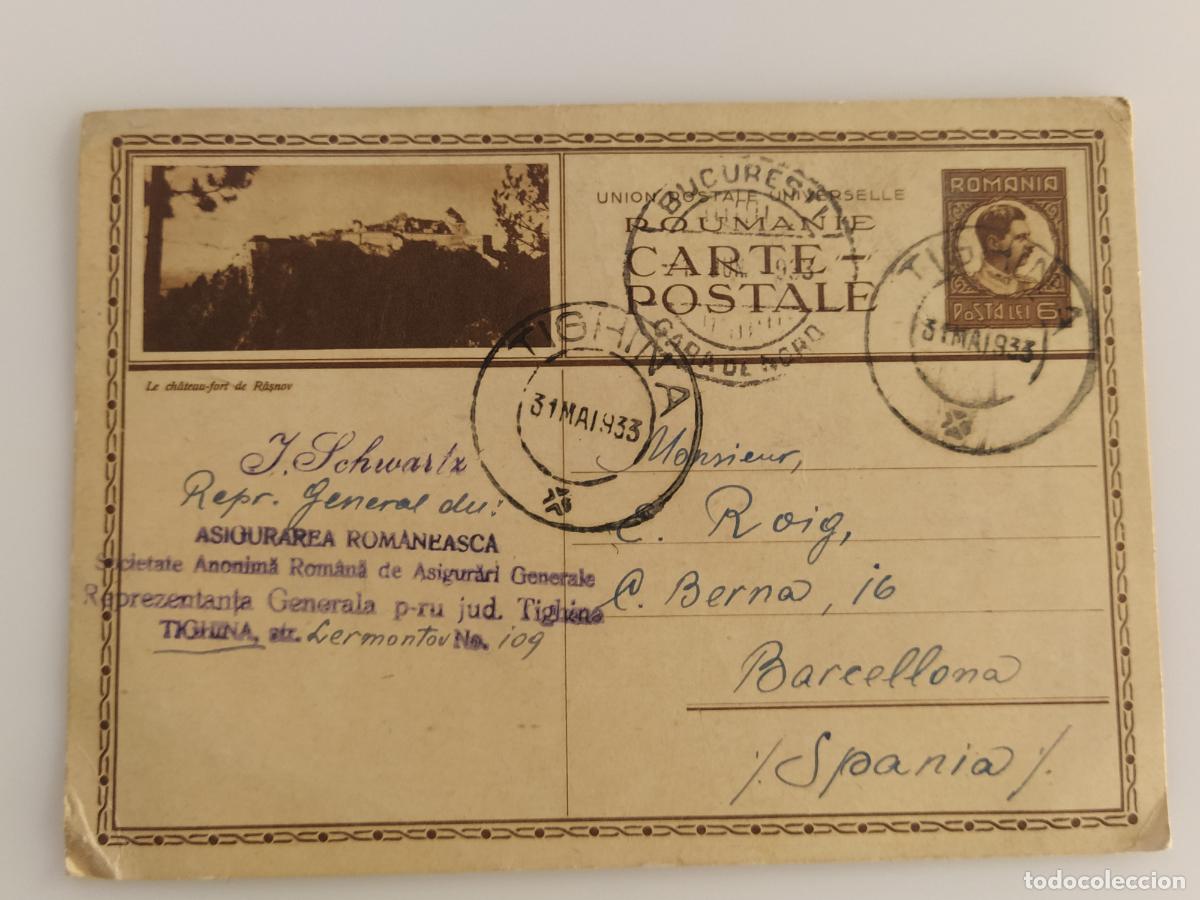 UNION POSTALE UNIVERSELLE
ROUMANIE
CARTE-
POSTALE
ROMANIA
POSTA LEI 6
BUCUREȘTI
IUN. 1933
GARA DE NORD
TIGHINA
31 MAI 933
TIGHINA
31 MAI 933
Le château-fort de Râșnov
J. Schwartz
Repr. General du:
ASIGURAREA ROMÂNEASCA
Societate Anonimă Română de Asigurări Generale
Reprezentanța Generala p-ru jud. Tighina
TIGHINA, str. Lermontov No. 109
Monsieur,
C. Roig,
C. Berna, 16
Barcellona
/. Spania /.
todocoleccion